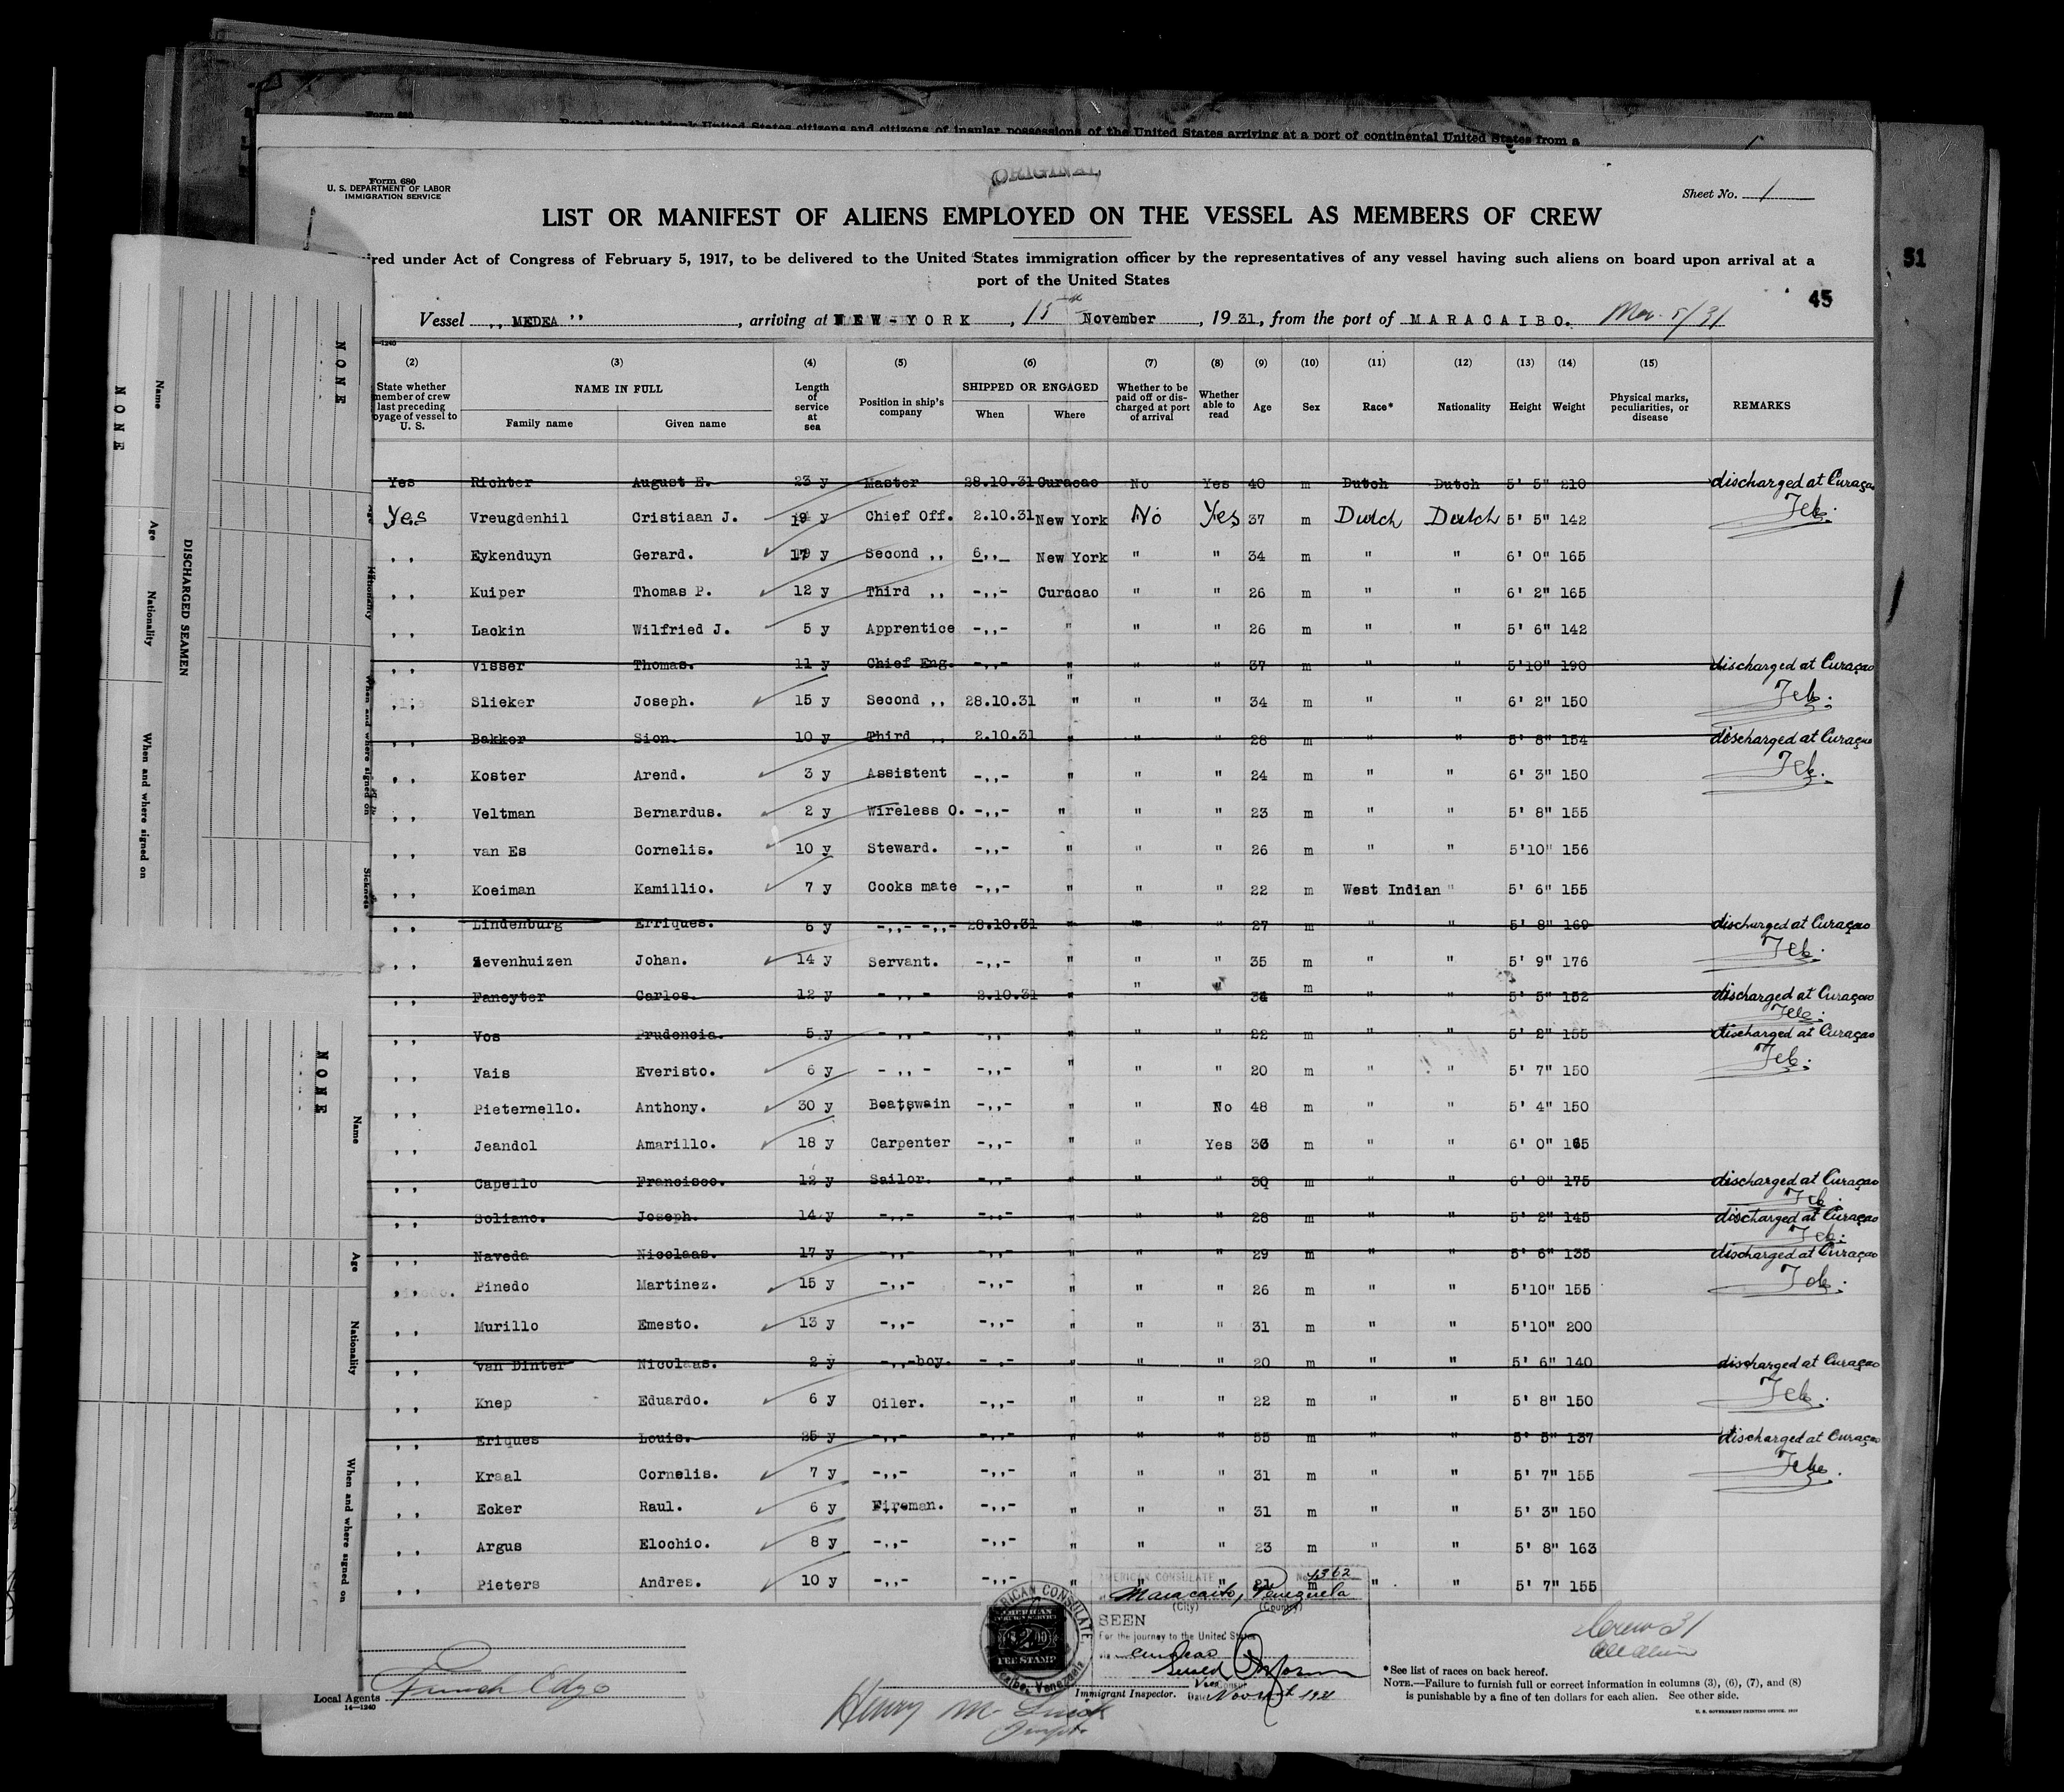 Form 680
Record on this blank United States citizens and citizens of insular possessions of the United States arriving at a port of continental United States from a
ORIGINAL
Form 680
U. S. DEPARTMENT OF LABOR
IMMIGRATION SERVICE
Sheet No. 1
LIST OR MANIFEST OF ALIENS EMPLOYED ON THE VESSEL AS MEMBERS OF CREW
ired under Act of Congress of February 5, 1917, to be delivered to the United States immigration officer by the representatives of any vessel having such aliens on board upon arrival at a
port of the United States
51
45
Vessel ,, MEDEA '' , arriving at NEW-YORK , 15th November , 1931, from the port of MARACAIBO. Nov. 5/31
(2) (3) (4) (5) (6) (7) (8) (9) (10) (11) (12) (13) (14) (15)
State whether member of crew last preceding oyage of vessel to U. S. NAME IN FULL Family name Given name Length of service at sea Position in ship's company SHIPPED OR ENGAGED When Where Whether to be paid off or discharged at port of arrival Whether able to read Age Sex Race* Nationality Height Weight Physical marks, peculiarities, or disease REMARKS
Yes Richter August E. 23 y Master 28.10.31 Curacao No Yes 40 m Dutch Dutch 5' 5" 210 discharged at Curaçao
Yes Vreugdenhil Cristiaan J. 19 y Chief Off. 2.10.31 New York No Yes 37 m Dutch Dutch 5' 5" 142
,, Eykenduyn Gerard. y Second ,, 6,,_ New York " " 34 m " " 6' 0" 165
,, Kuiper Thomas P. 12 y Third ,, -,,- Curacao " " 26 m " " 6' 2" 165
,, Lackin Wilfried J. 5 y Apprentice -,,- " " " 26 m " " 5' 6" 142
,, Visser Thomas. 11 y Chief Eng. -,,- " " " 37 m " " 5'10" 190 discharged at Curaçao
,, Slieker Joseph. 15 y Second ,, 28.10.31 " " " 34 m " " 6' 2" 150
,, Bakker Sion. 10 y Third ,, 2.10.31 " " " 28 m " " 5' 8" 154 discharged at Curaçao
,, Koster Arend. 3 y Assistent -,,- " " " 24 m " " 6' 3" 150
,, Veltman Bernardus. 2 y Wireless O. -,,- " " " 23 m " " 5' 8" 155
,, van Es Cornelis. 10 y Steward. -,,- " " " 26 m " " 5'10" 156
,, Koeiman Kamillio. 7 y Cooks mate -,,- " " " 22 m West Indian " 5' 6" 155
,, Lindenburg Erriques. 6 y -,,- -,,- 28.10.31 " " " 27 m " " 5' 8" 169 discharged at Curaçao
,, Zevenhuizen Johan. 14 y Servant. -,,- " " " 35 m " " 5' 9" 176
,, Faneyter Carlos. 12 y -,,- 2.10.31 " " " 34 m " " 5' 5" 152 discharged at Curaçao
,, Vos Prudencia. 5 y -,,- -,,- " " " 22 m " " 5' 2" 155 discharged at Curaçao
,, Vais Everisto. 6 y -,,- -,,- " " " 20 m " " 5' 7" 150
,, Pieternello. Anthony. 30 y Boatswain -,,- " " No 48 m " " 5' 4" 150
,, Jeandol Amarillo. 18 y Carpenter -,,- " " Yes 36 m " " 6' 0" 165
,, Capello Francisco. 12 y Sailor. -,,- " " " 30 m " " 6' 0" 175 discharged at Curaçao
,, Soliano. Joseph. 14 y -,,- -,,- " " " 28 m " " 5' 2" 145 discharged at Curaçao
,, Naveda Nicolaas. 17 y -,,- -,,- " " " 29 m " " 5' 6" 135 discharged at Curaçao
,, Pinedo Martinez. 15 y -,,- -,,- " " " 26 m " " 5'10" 155
,, Murillo Emesto. 13 y -,,- -,,- " " " 31 m " " 5'10" 200
,, van Dinter Nicolaas. 2 y -,,-boy. -,,- " " " 20 m " " 5' 6" 140 discharged at Curaçao
,, Knep Eduardo. 6 y Oiler. -,,- " " " 22 m " " 5' 8" 150
,, Eriques Louis. 25 y -,,- -,,- " " " 55 m " " 5' 5" 137 discharged at Curaçao
,, Kraal Cornelis. 7 y -,,- -,,- " " " 31 m " " 5' 7" 155
,, Ecker Raul. 6 y Fireman. -,,- " " " 31 m " " 5' 3" 150
,, Argus Elochio. 8 y -,,- -,,- " " " 23 m " " 5' 8" 163
,, Pieters Andres. 10 y -,,- -,,- " " " 21 m " " 5' 7" 155
AMERICAN CONSULATE No. 1362
Maracaibo, Venezuela
(City) (Country)
SEEN
For the journey to the United States
via Curacao
Vice Consul
Date Nov 1931
AMERICAN CONSULATE
AMERICAN
FEE STAMP
Crew 31
All Alien
Local Agents
14—1240
Henry M.
Immigrant Inspector.
*See list of races on back hereof.
NOTE.—Failure to furnish full or correct information in columns (3), (6), (7), and (8)
is punishable by a fine of ten dollars for each alien. See other side.
U. S. GOVERNMENT PRINTING OFFICE
NONE
Name
Age
Nationality
When and where signed on
DISCHARGED SEAMEN
NONE
NONE
Name
Age
Nationality
When and where signed on